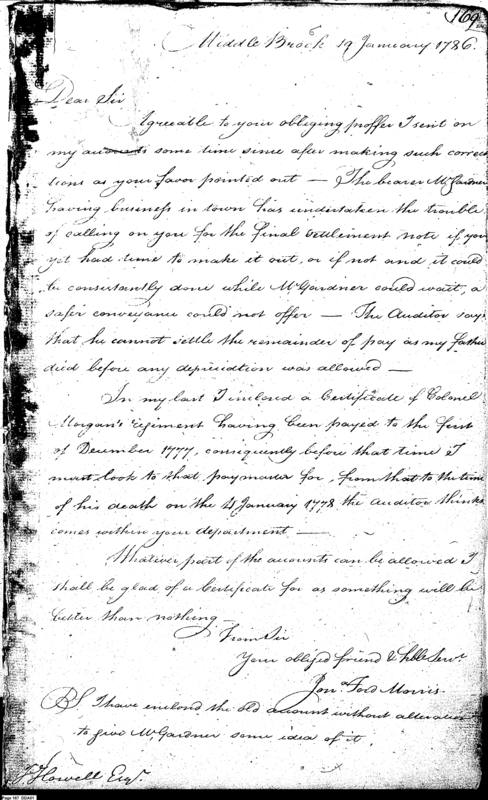 169
Middle Brook 19 January 1786
Dear Sir
Agreeable to your obliging proffer I sent on
my accounts some time since after making such correc
tions as your favor pointed out — The bearer Mr Gardner
having business in town has undertaken the trouble
of calling on you for the final settlement note if you
yet had time to make it out, or if not and it could
be consistantly done while Mr Gardner could wait, a
safer conveyance could not offer — The Auditor says
that he cannot settle the remainder of pay as my father
died before any depreciation was allowed —
In my last I inclosed a Certificate of Colonel
Morgan's regiment having been payed to the first
of December 1777, consequently before that time I
must look to that paymaster for, from that to the time
of his death on the 4 January 1778 the Auditor thinks
comes within your department —
Whatever part of the accounts can be allowed I
shall be glad of a Certificate for as something will be
better than nothing
From Sir
Your obliged friend & Hble Servt
Jon. Ford Morris
PS I have enclosed the old account without alteration
to give Mr Gardner some idea of it.
Howell Esqr.
Page 167